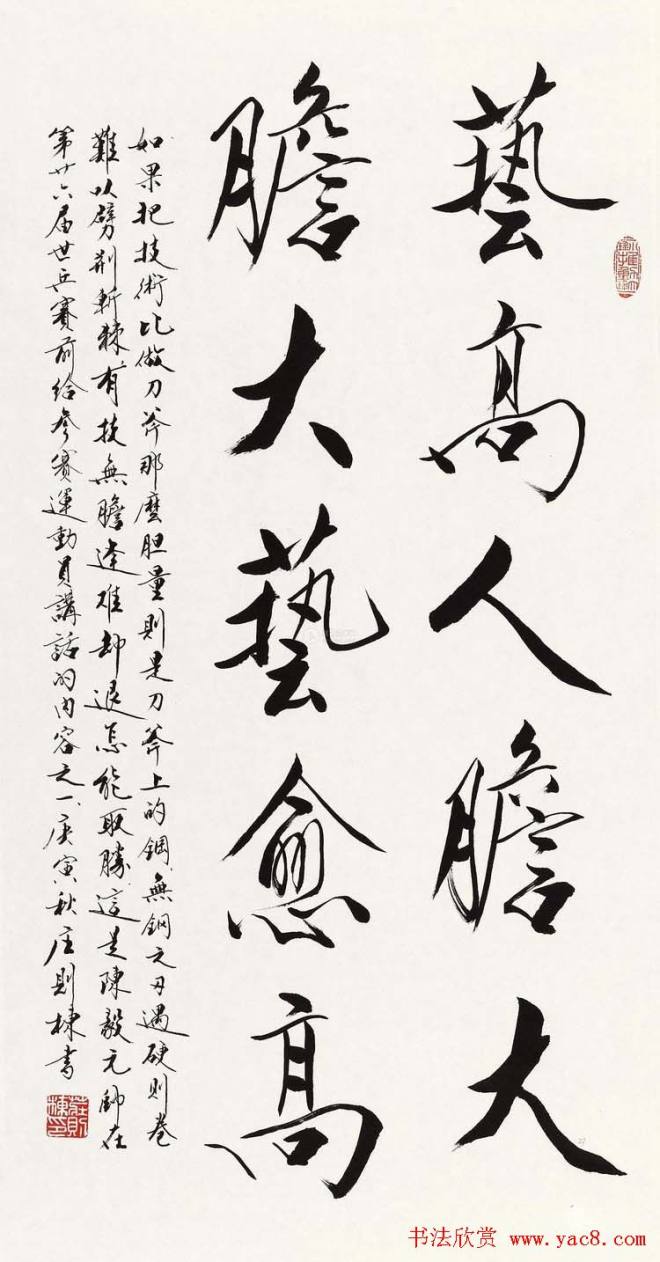 藝高人膽大
膽大藝愈高
如果把技術比做刀斧那麼胆量則是刀斧上的鋼無鋼之刃遇硬則卷
難以劈荆斬棘有技無膽逢难却退怎能取勝這是陳毅元帥在
第廿六届世乒賽前給参賽運動員講話的内容之一庚寅秋庄則棟書
莊則棟印
书法欣赏 www.yac8.com